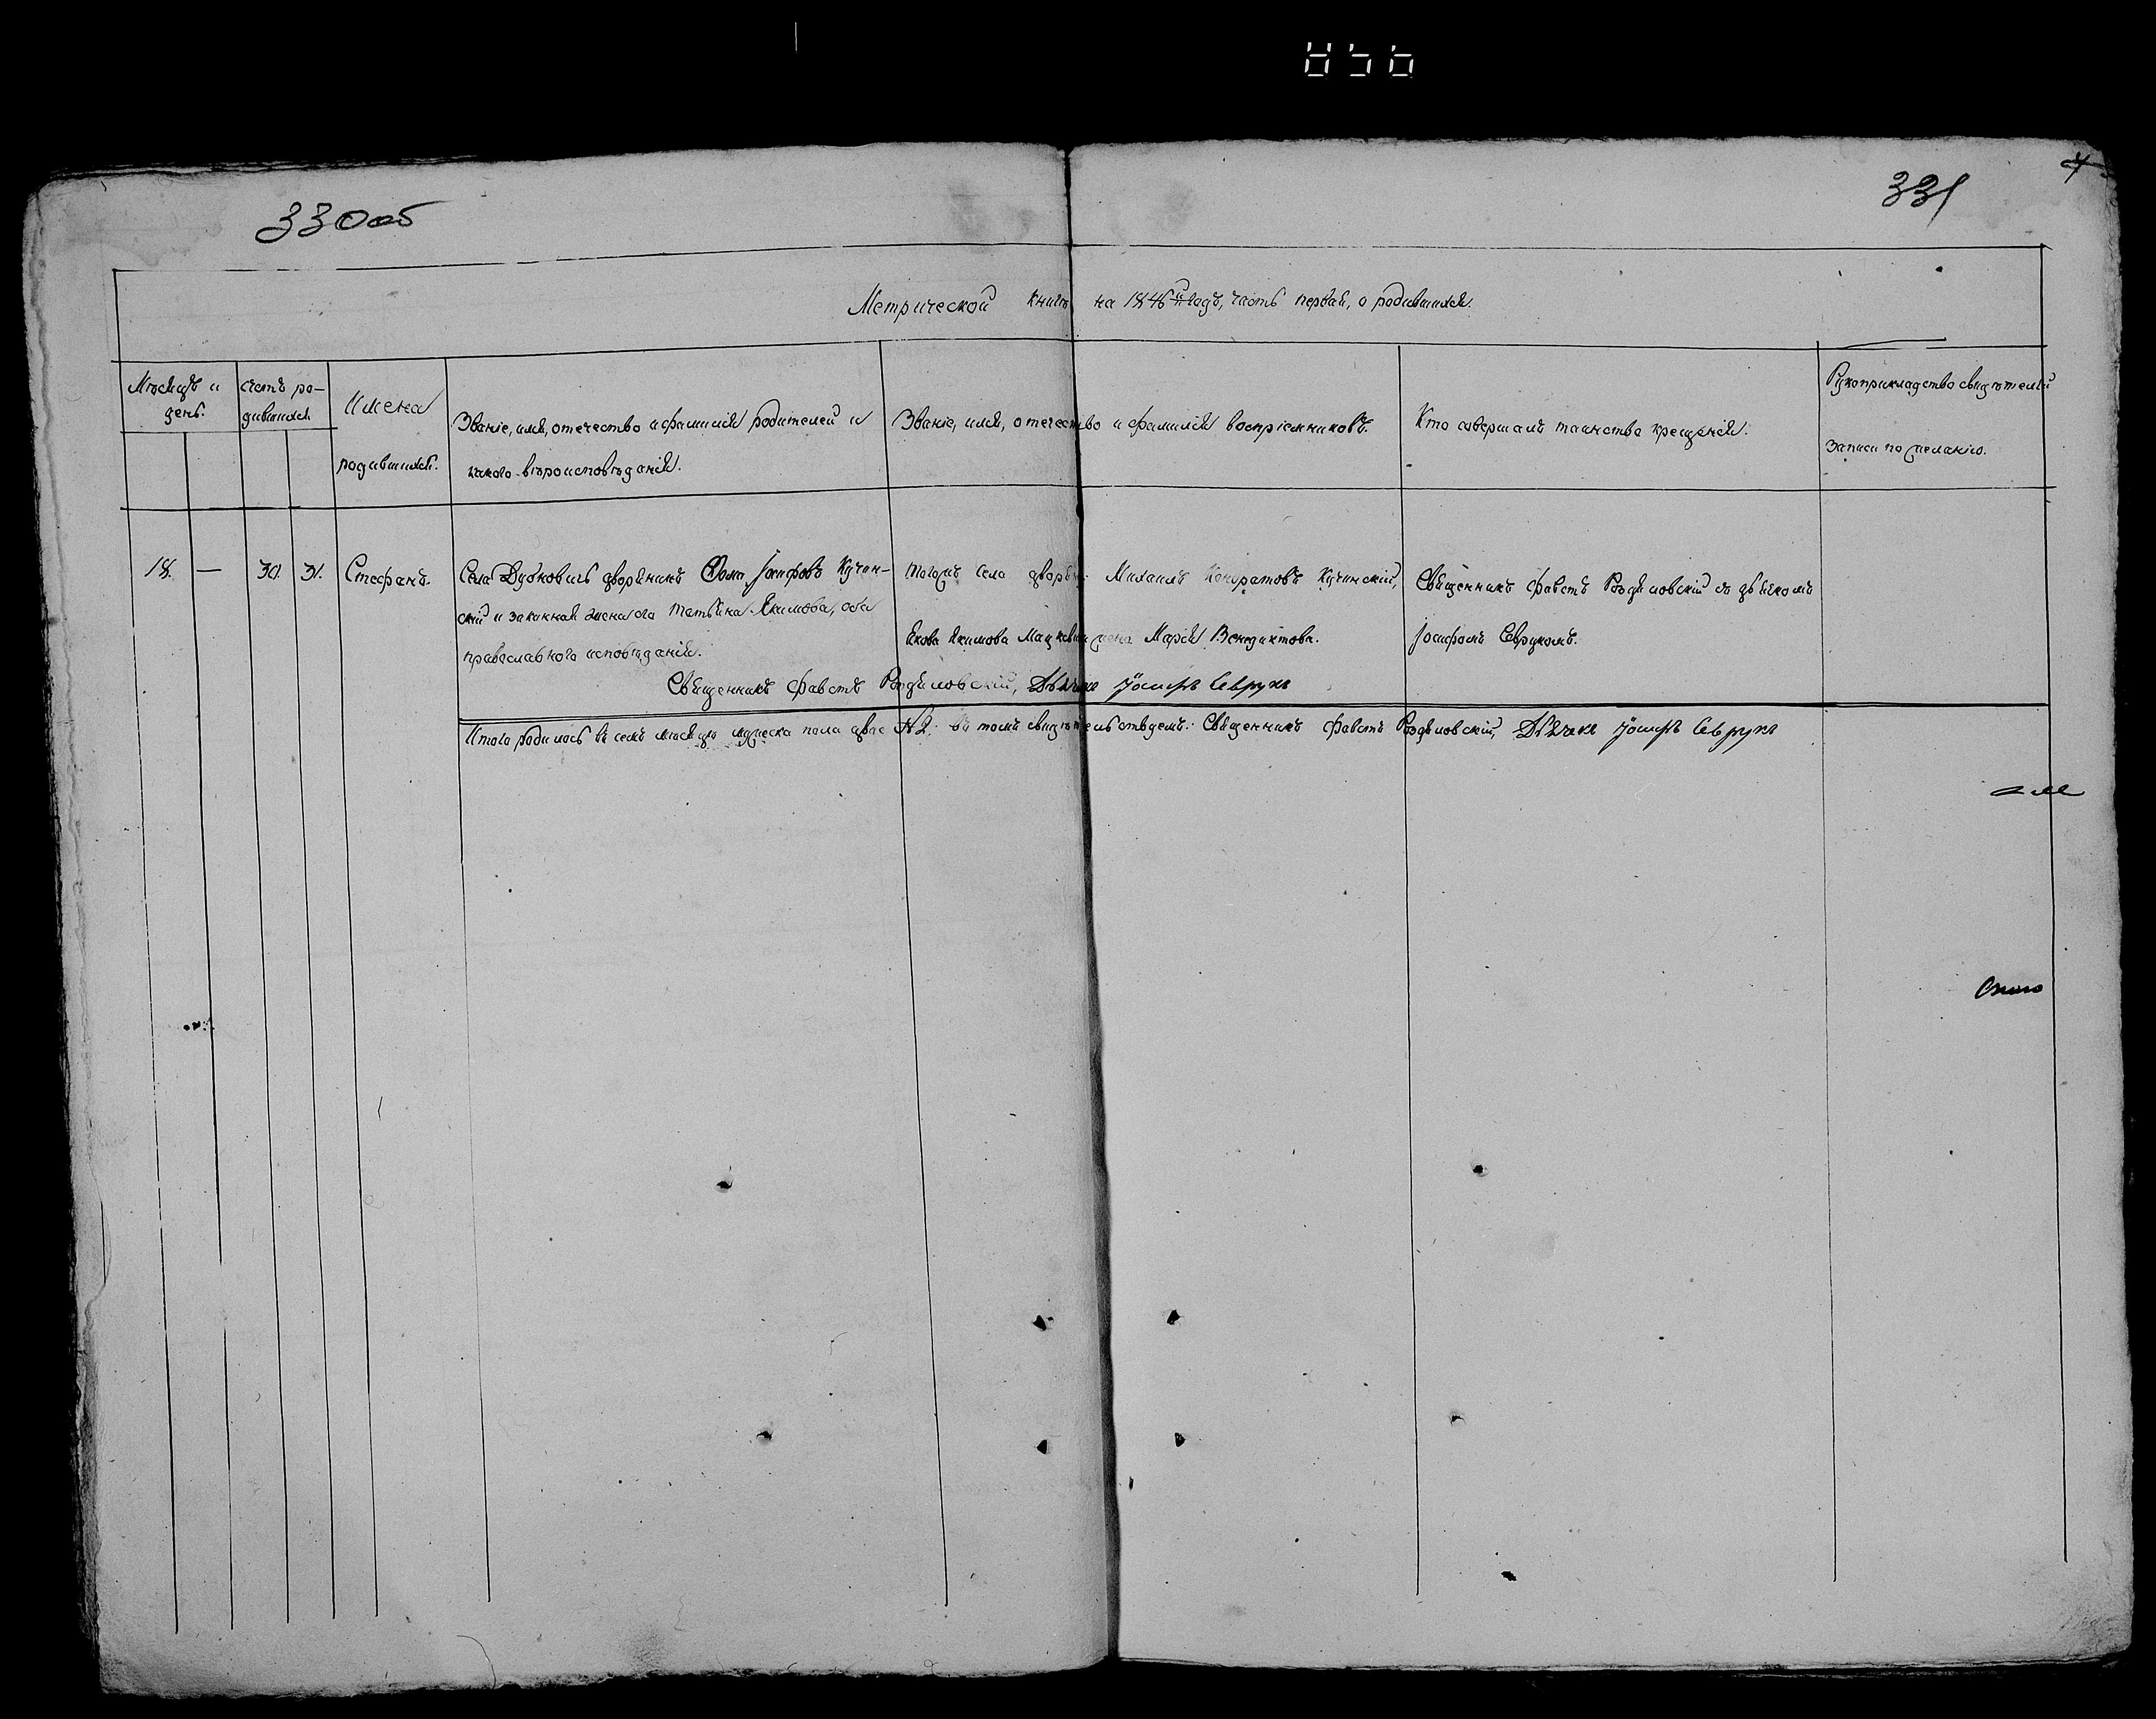 330об
331
Метрической книги на 1846й годъ, часть первая, о родившихся.
Мѣсяцъ и день.
Счетъ родившихся.
Имена родившихся.
Званіе, имя, отечество и фамилія родителей и
какого вѣроисповѣданія.
Званіе, имя, отечество и фамилія воспріемниковъ.
Кто совершалъ таинство крещенія.
Рукоприкладство свидѣтелей
записи по желанію.
18. — 30. 31. Стефанъ.
Села Дубковичъ дворянинъ Ѳома Іосифовъ Кучин-
скій и законная жена его Татьяна Якимова, оба
православного исповѣданія.
Тогожъ села дворян: Михаилъ Кондратовъ Кучинскій,
Якова Якимова жена Марія Венедиктова.
Священникъ Фавстъ Роздяловскій съ дьячкомъ
Іосифомъ Севрукомъ.
Священникъ Фавстъ Роздяловскій, Дьячекъ Іосифъ Севрукъ
Итого родилось въ семъ мѣсяцѣ мужеска пола двое № 2. въ томъ свидѣтельствуемъ: Священникъ Фавстъ Роздяловскій, Дьячекъ Іосифъ Севрукъ